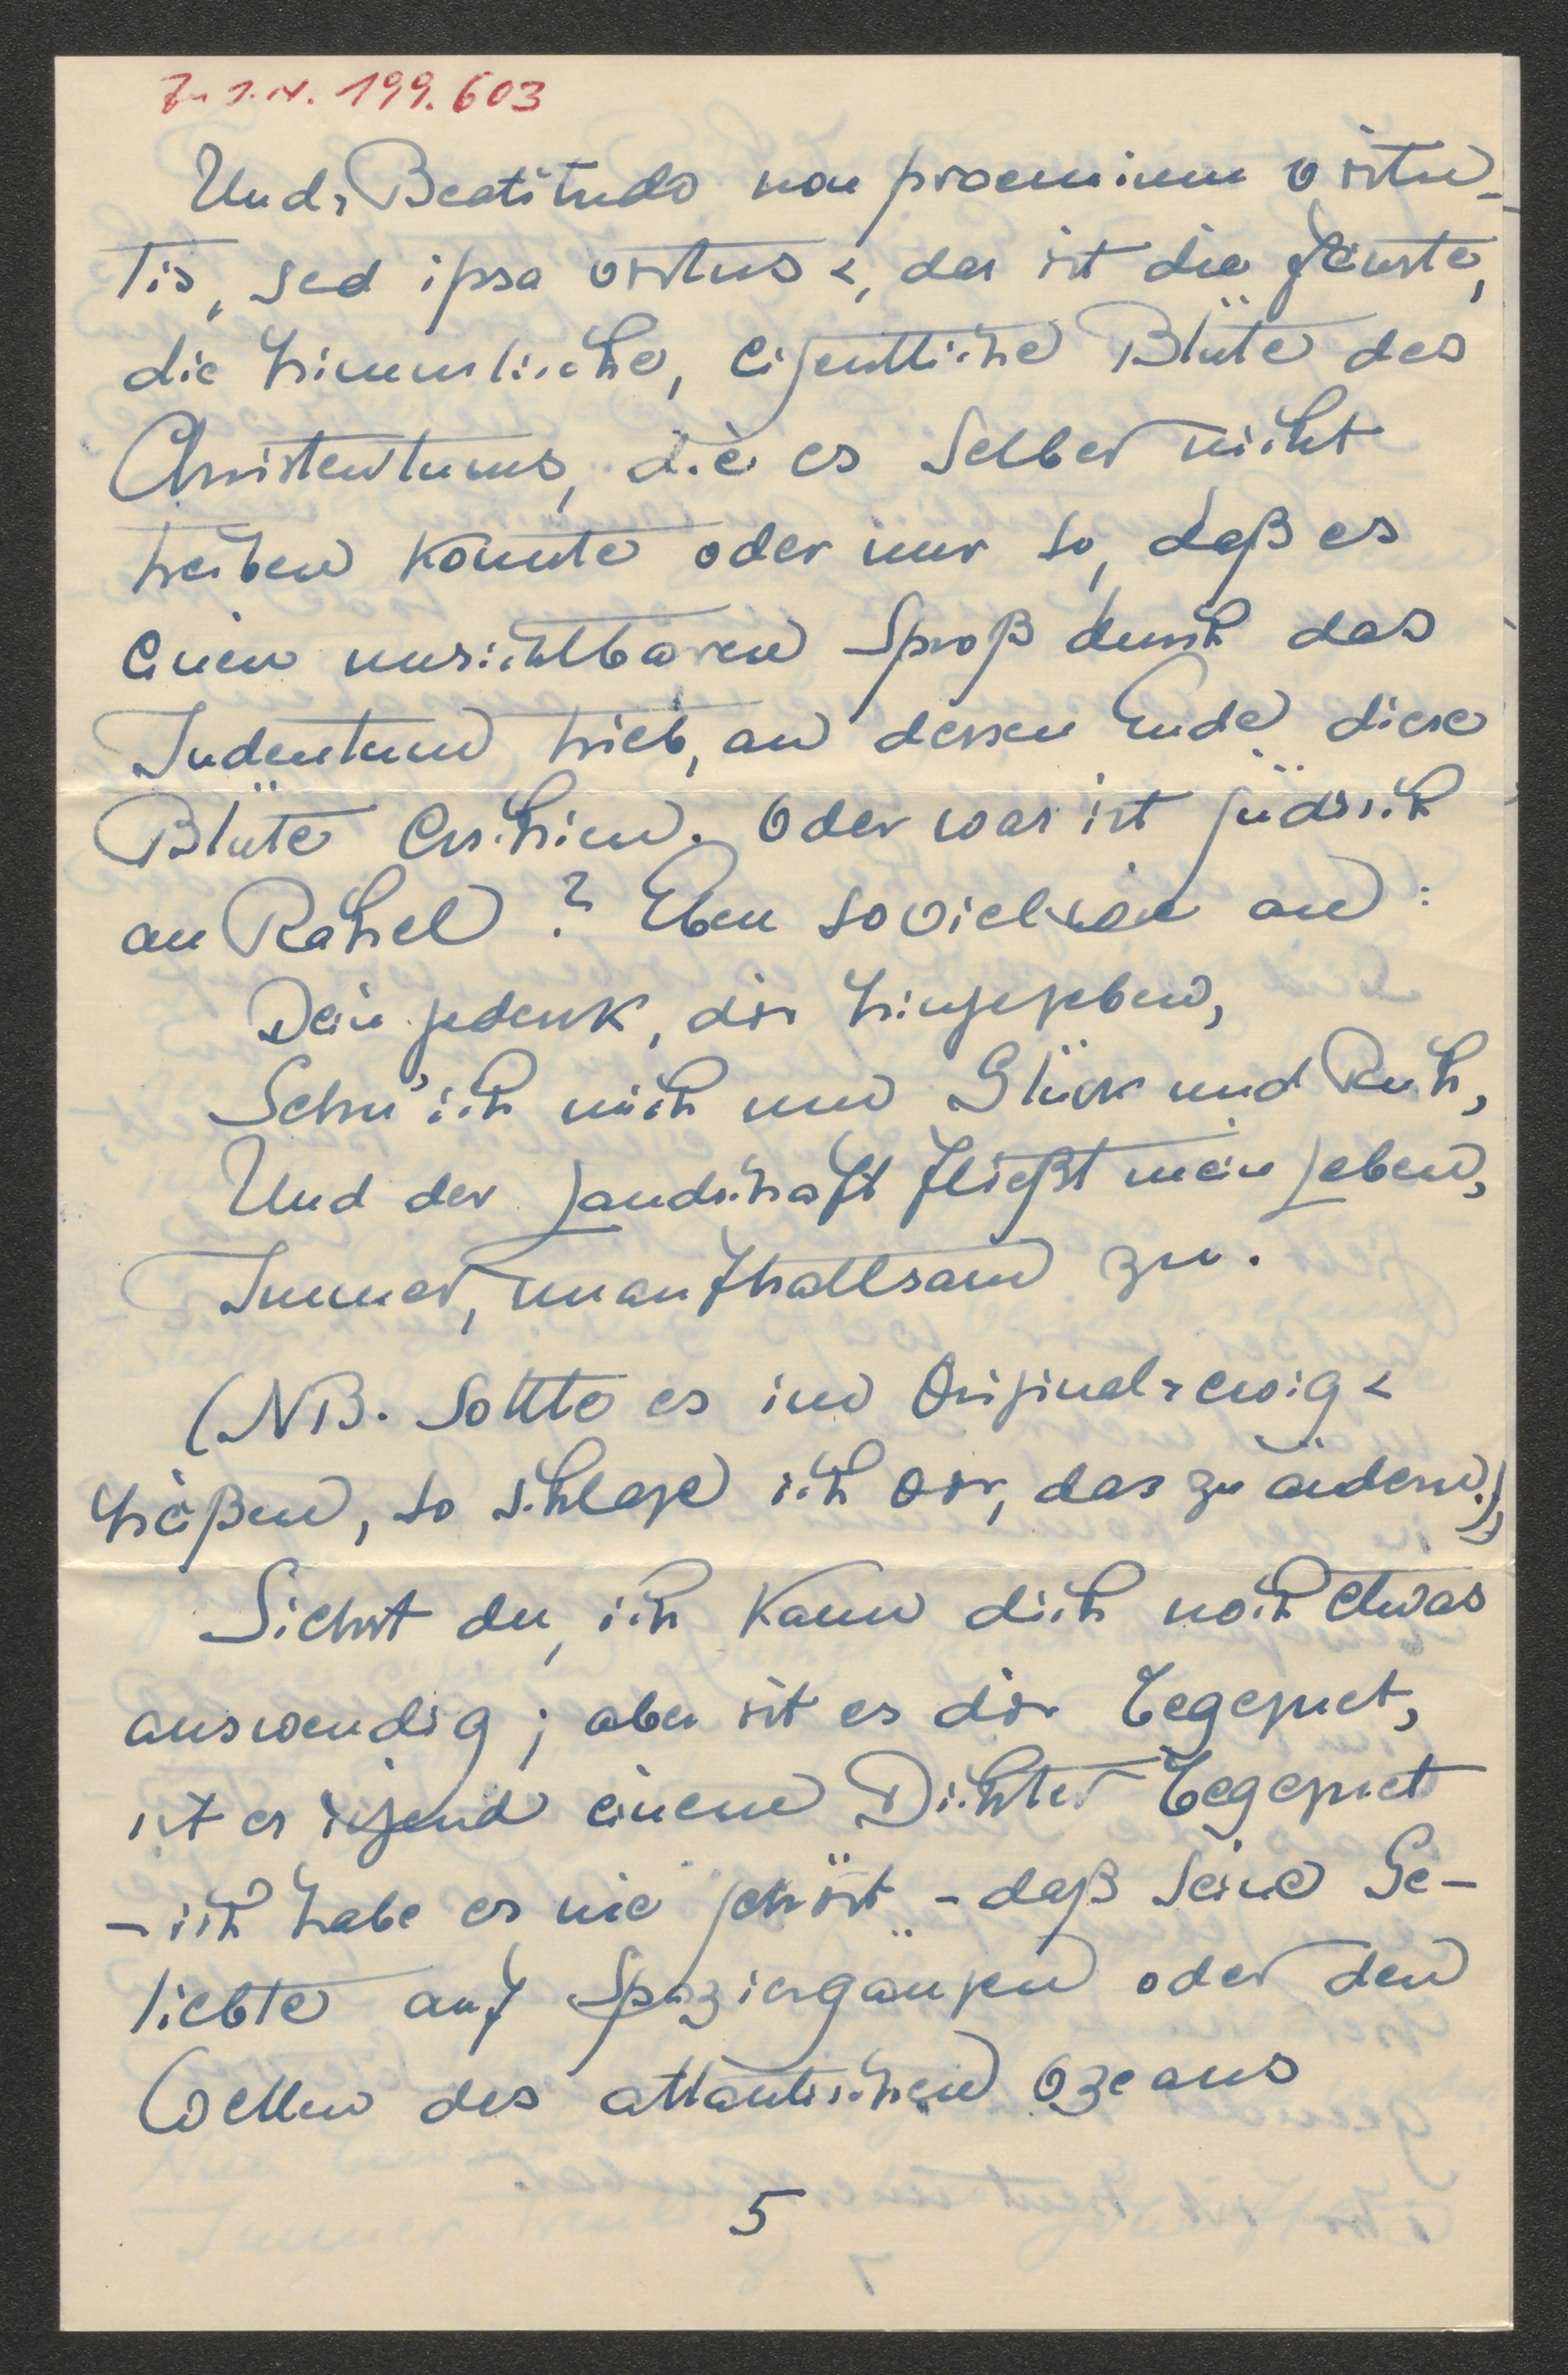 Zu I.N. 199.603
Und ›Beatitudo non proemium virtu-
tis, sed ipsa virtus‹, das ist die feinste,
die himmlische, eigentliche Blüte des
Christentums, die es selber nicht
treiben konnte oder nur so, daß es
einen unsichtbaren Sproß durch das
Judentum trieb, an dessen Ende diese
Blüte erschien. Oder was ist jüdisch
an Rahel? Eben soviel wie an:
Dein gedenk, dir hingegeben,
Sehn' ich mich um Glück und Ruh,
Und der Landschaft fließt mein Leben,
Immer, unaufhaltsam zu.
(NB. Sollte es im Original ›ewig‹
heißen, so schlage ich vor, das zu ändern.)
Siehst du, ich kann dich noch etwas
auswendig; aber ist es dir begegnet,
ist es irgend einem Dichter begegnet
– ich habe es nie gehört – daß seine Ge-
liebte auf Spaziergängen oder den
Wellen des atlantischen Ozeans
5